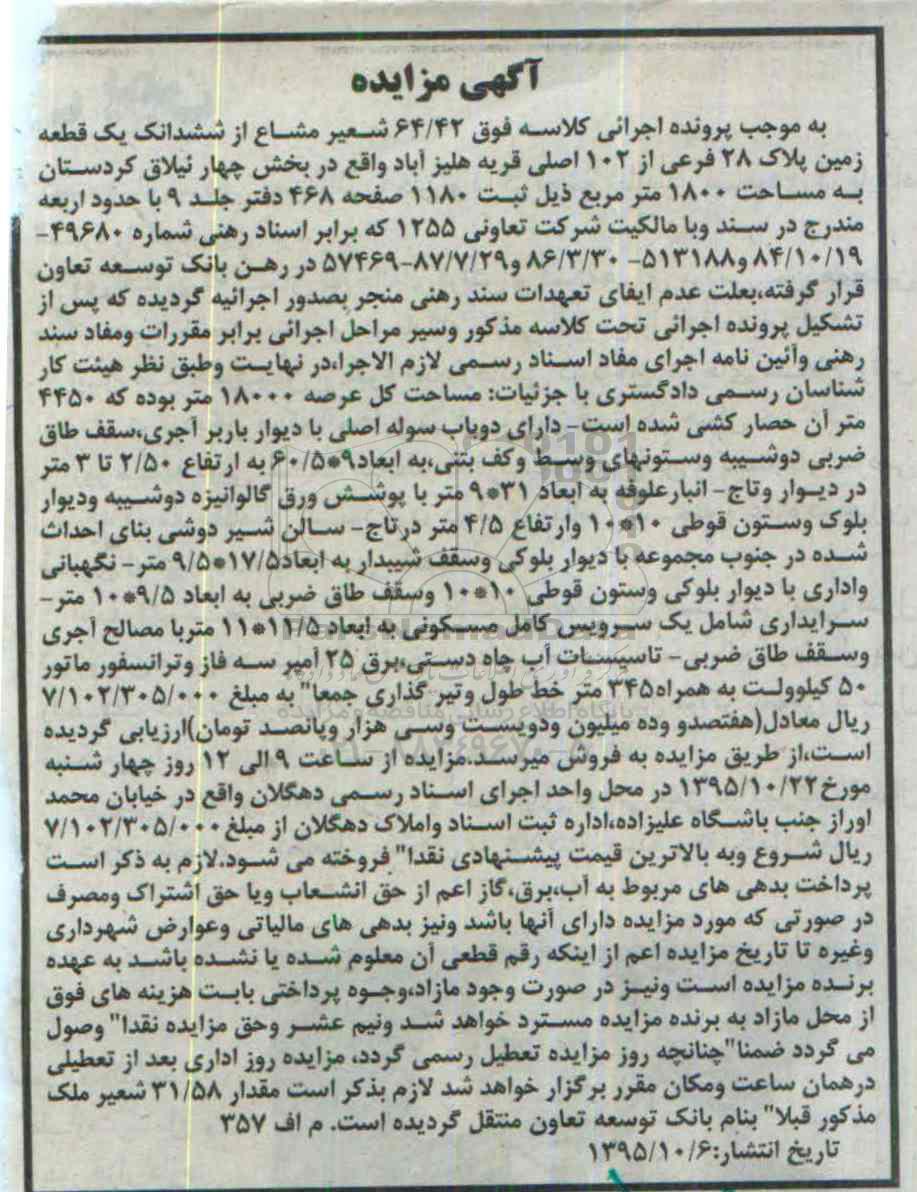 آگهی مزایده
به موجب پرونده اجرائی کلاسه فوق ۶۴/۴۲ شعیر مشاع از ششدانک یک قطعه
زمین پلاک ۲۸ فرعی از ۱۰۲ اصلی قریه هلیز آباد واقع در بخش چهار ئیلاق کردستان
به مساحت ۱۸۰۰ متر مربع ذیل ثبت ۱۱۸۰ صفحه ۴۶۸ دفتر جلد ۹ با حدود اربعه
مندرج در سند وبا مالکیت شرکت تعاونی ۱۲۵۵ که برابر اسناد رهنی شماره ۴۹۶۸۰-
۸۴/۱۰/۱۹ و۵۱۳۱۸۸- ۸۶/۳/۳۰ و۸۷/۷/۲۹-۵۷۴۶۹ در رهن بانک توسعه تعاون
قرار گرفته،بعلت عدم ایفای تعهدات سند رهنی منجر بصدور اجرائیه گردیده که پس از
تشکیل پرونده اجرائی تحت کلاسه مذکور وسیر مراحل اجرائی برابر مقررات ومفاد سند
رهنی وآئین نامه اجرای مفاد اسناد رسمی لازم الاجرا،در نهایت وطبق نظر هیئت کار
شناسان رسمی دادگستری با جزئیات: مساحت کل عرصه ۱۸۰۰۰ متر بوده که ۴۴۵۰
متر آن حصار کشی شده است- دارای دوباب سوله اصلی با دیوار باربر آجری،سقف طاق
ضربی دوشیبه وستونهای وسط وکف بتنی،به ابعاد۹*۶۰/۵ به ارتفاع ۲/۵۰ تا ۳ متر
در دیوار وتاج- انبارعلوفه به ابعاد ۳۱*۹ متر با پوشش ورق گالوانیزه دوشیبه ودیوار
بلوک وستون قوطی ۱۰*۱۰ وارتفاع ۴/۵ متر درتاج- سالن شیر دوشی بنای احداث
شده در جنوب مجموعه با دیوار بلوکی وسقف شیبدار به ابعاد۱۷/۵*۹/۵ متر- نگهبانی
واداری با دیوار بلوکی وستون قوطی ۱۰*۱۰ وسقف طاق ضربی به ابعاد ۹/۵*۱۰ متر-
سرایداری شامل یک سرویس کامل مسکونی به ابعاد ۱۱/۵*۱۱ متربا مصالح آجری
وسقف طاق ضربی- تاسیسات آب چاه دستی،برق ۲۵ آمپر سه فاز وترانسفور ماتور
۵۰ کیلوولت به همراه۳۴۵ متر خط طول وتیر گذاری جمعا" به مبلغ ۷/۱۰۲/۳۰۵/۰۰۰
ریال معادل(هفتصدو ده میلیون ودویست وسی هزار وپانصد تومان)ارزیابی گردیده
است،از طریق مزایده به فروش میرسد.مزایده از ساعت ۹ الی ۱۲ روز چهار شنبه
مورخ۱۳۹۵/۱۰/۲۲ در محل واحد اجرای اسناد رسمی دهگلان واقع در خیابان محمد
اوراز جنب باشگاه علیزاده،اداره ثبت اسناد واملاک دهگلان از مبلغ ۷/۱۰۲/۳۰۵/۰۰۰
ریال شروع وبه بالاترین قیمت پیشنهادی نقدا" فروخته می شود.لازم به ذکر است
پرداخت بدهی های مربوط به آب،برق،گاز اعم از حق انشعاب ویا حق اشتراک ومصرف
در صورتی که مورد مزایده دارای آنها باشد ونیز بدهی های مالیاتی وعوارض شهرداری
وغیره تا تاریخ مزایده اعم از اینکه رقم قطعی آن معلوم شده یا نشده باشد به عهده
برنده مزایده است ونیز در صورت وجود مازاد،وجوه پرداختی بابت هزینه های فوق
از محل مازاد به برنده مزایده مسترد خواهد شد ونیم عشر وحق مزایده نقدا" وصول
می گردد ضمنا"چنانچه روز مزایده تعطیل رسمی گردد، مزایده روز اداری بعد از تعطیلی
درهمان ساعت ومکان مقرر برگزار خواهد شد لازم بذکر است مقدار ۳۱/۵۸ شعیر ملک
مذکور قبلا" بنام بانک توسعه تعاون منتقل گردیده است. م اف ۳۵۷
تاریخ انتشار:۱۳۹۵/۱۰/۶